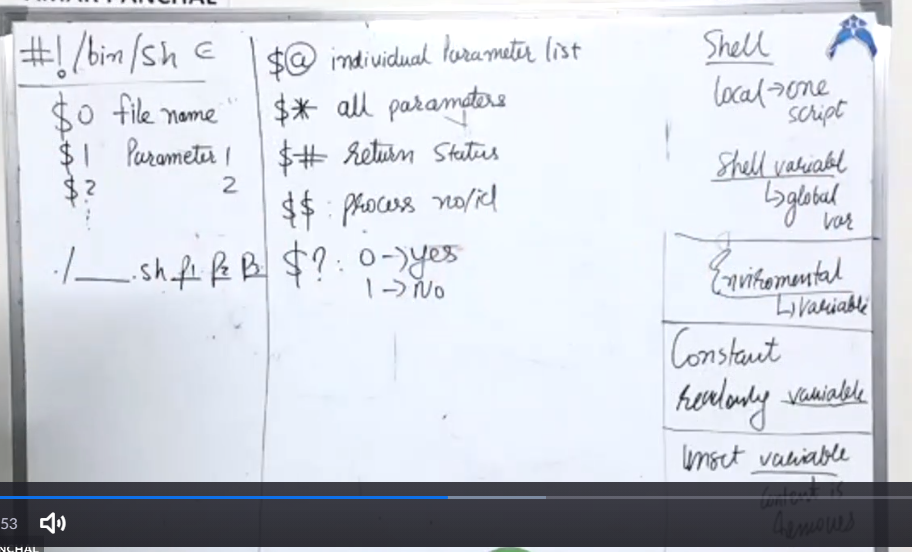 #!/bin/sh ∈
$0 file name
$1 Parameter 1
$? 2
⋮
./___.sh P1 P2 P3
$@ individual Parameter list
$* all parameters
$# return Status
$$ : process no/id
$? : 0 → yes
1 → No
Shell
local → one
script
Shell variable
↳ global
var
Enviromental
↳ variable
Constant
readonly variable
Unset variable
Content is
Removes
53
NCHAL